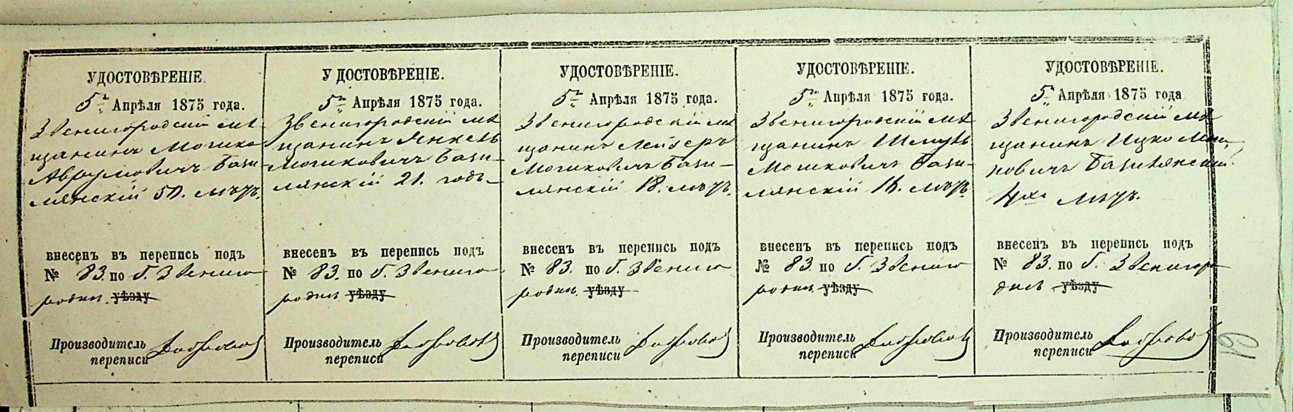 УДОСТОВѢРЕНІЕ.
5го Апрѣля 1875 года.
Звенигородскій мѣ
щанинъ Мошко
Аврумовичъ Бази
лянскій 50. лѣтъ.
внесенъ въ перепись подъ
№ 83. по г. Звениго
родки уѣзду
Производитель
переписи
УДОСТОВѢРЕНІЕ.
5го Апрѣля 1875 года.
Звенигородскій мѣ
щанинъ Янкель
Мошковичъ Бази
лянскій 21. годъ
внесенъ въ перепись подъ
№ 83. по г. Звениго
родки уѣзду
Производитель
переписи
УДОСТОВѢРЕНІЕ.
5го Апрѣля 1875 года.
Звенигородскій мѣ
щанинъ Лейзеръ
Мошковичъ Бази
лянскій 18. лѣтъ.
внесенъ въ перепись подъ
№ 83. по г. Звениго
родки уѣзду
Производитель
переписи
УДОСТОВѢРЕНІЕ.
5го Апрѣля 1875 года.
Звенигородскій мѣ
щанинъ
Мошковичъ Бази
лянскій лѣтъ.
внесенъ въ перепись подъ
№ 83. по г. Звениго
родки уѣзду
Производитель
переписи
УДОСТОВѢРЕНІЕ.
5го Апрѣля 1875 года
Звенигородскій мѣ
щанинъ Ицко Мош
ковичъ Базилянскій
4хъ лѣтъ.
внесенъ въ перепись подъ
№ 83. по г. Звенигор
дкѣ уѣзду
Производитель
переписи